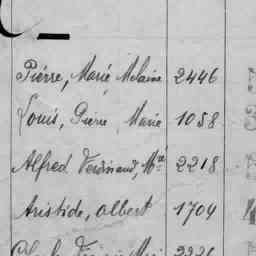 Piérre, Marié Melaine 2446
Louis, Pierre Marie 1058
Alfred Ferdinand, Mie 2218
Aristide, Albert 1704